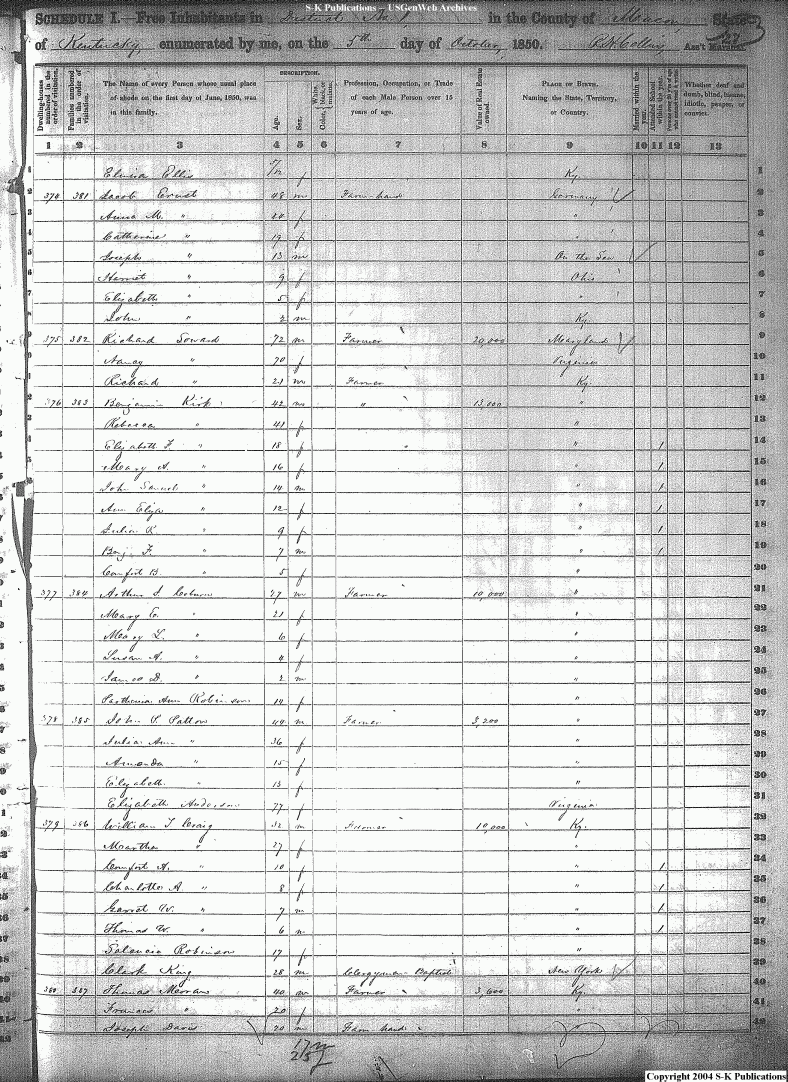 S-K Publications – USGenWeb Archives
SCHEDULE I.—Free Inhabitants in District No. 1 in the County of Mason State
of Kentucky enumerated by me, on the 5th day of October, 1850. Ass't Marshal.
Dwelling-houses numbered in the order of visitation. Families numbered in the order of visitation. The Name of every Person whose usual place of abode on the first day of June, 1850, was in this family. DESCRIPTION. Age. Sex. Color, White, black, or mulatto. Profession, Occupation, or Trade of each Male Person over 15 years of age. Value of Real Estate owned. PLACE OF BIRTH. Naming the State, Territory, or Country. Married within the year. Attended School within the year. Whether deaf and dumb, blind, insane, idiotic, pauper, or convict.
1 2 3 4 5 6 7 8 9 10 11 12 13
1 Ellis f Ky 1
2 374 381 Jacob Ernst 48 m Farm hand Germany 2
3 Anna M. " f " 3
4 Catherine " 19 f " 4
5 Joseph " 13 m On the Sea 5
6 Harriet " 9 f Ohio 6
7 Elizabeth " 5 f " 7
8 John " 2 m Ky 8
9 375 382 Richard Soward 72 m Farmer 20,000 Maryland 9
Nancy " 70 f Virginia 10
Richard " 21 m Farmer Ky. 11
376 383 Benjamin Kirk 42 m " 13,000 " 12
Rebecca " 41 f " 13
Elizabeth F. " 18 f " " 1 14
Mary A. " 16 f " 1 15
John Samuel " 14 m " 1 16
Ann Eliza " 12 f " 1 17
Julia K. " 9 f " 1 18
Benj. F. " 7 m " 1 19
Comfort B. " 5 f " 20
377 384 Arthur S. Coburn 27 m Farmer 10,000 " 21
Mary E. " 21 f " 22
Mary L. " 6 f " 23
Susan A. " 4 f " 24
James D. " 2 m " 25
Parthenia Ann Robinson 14 f " 26
378 385 John P. Patton 49 m Farmer 3,200 " 27
Julia Ann " 36 f " 28
Amanda " 15 f " 29
Elizabeth " 13 f " 30
Elizabeth Anderson 77 f Virginia 31
379 386 William T. Craig 32 m Farmer 10,000 Ky. 32
Martha " 27 f " 33
Comfort A. " 10 f " 1 34
Charlotte A " 8 f " 1 35
Garret W. " 7 m " 1 36
Thomas W. " 6 m " 1 37
Robinson 17 f " 38
Clark King 28 m Clergyman Baptist New York 39
380 387 Thomas 40 m Farmer 3,600 Ky. 40
Frances " 20 f " 41
Joseph Davis 20 m Farm hand 42
17 m
25 f
Copyright 2004 S-K Publications